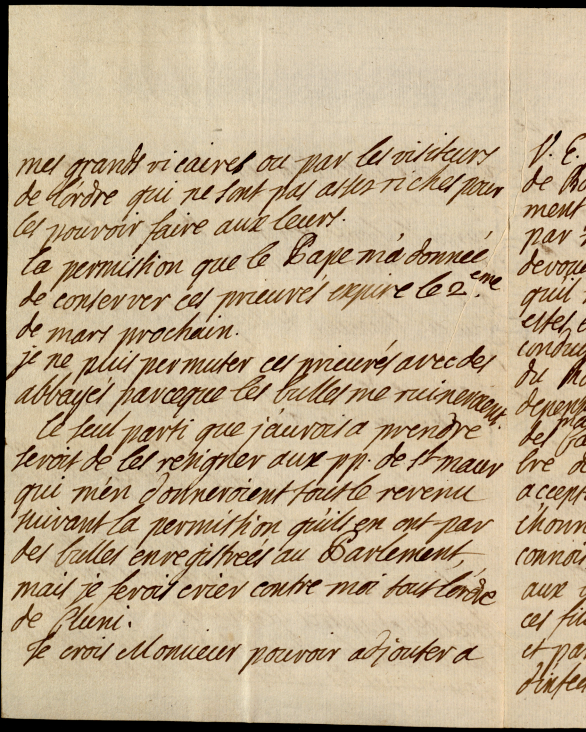 mes grands vicaires ou par les visiteurs
de l'ordre qui ne sont pas asses riches pour
les pouvoir faire aux leurs.
la permission que le Pape m'a donnée
de conserver ces prieurés expire le 2.eme
de mars prochain.
je ne puis permuter ces prieurés avec des
abbayes parceque les bulles me ruineroient.
Le seul parti que j'aurois a prendre
seroit de les resigner aux pp. de St maur
qui m'en donneroient tout le revenu
suivant la permission qu'ils en ont par
des bulles enregistrées au Parlement,
mais je ferois crier contre moi tout l'ordre
de Cluni.
Je crois Monsieur pouvoir adjouter a
V. E
de
ment
par
devou
qu'il
estes
du
depen
des
bre
accept
connois
aux
ces
et par